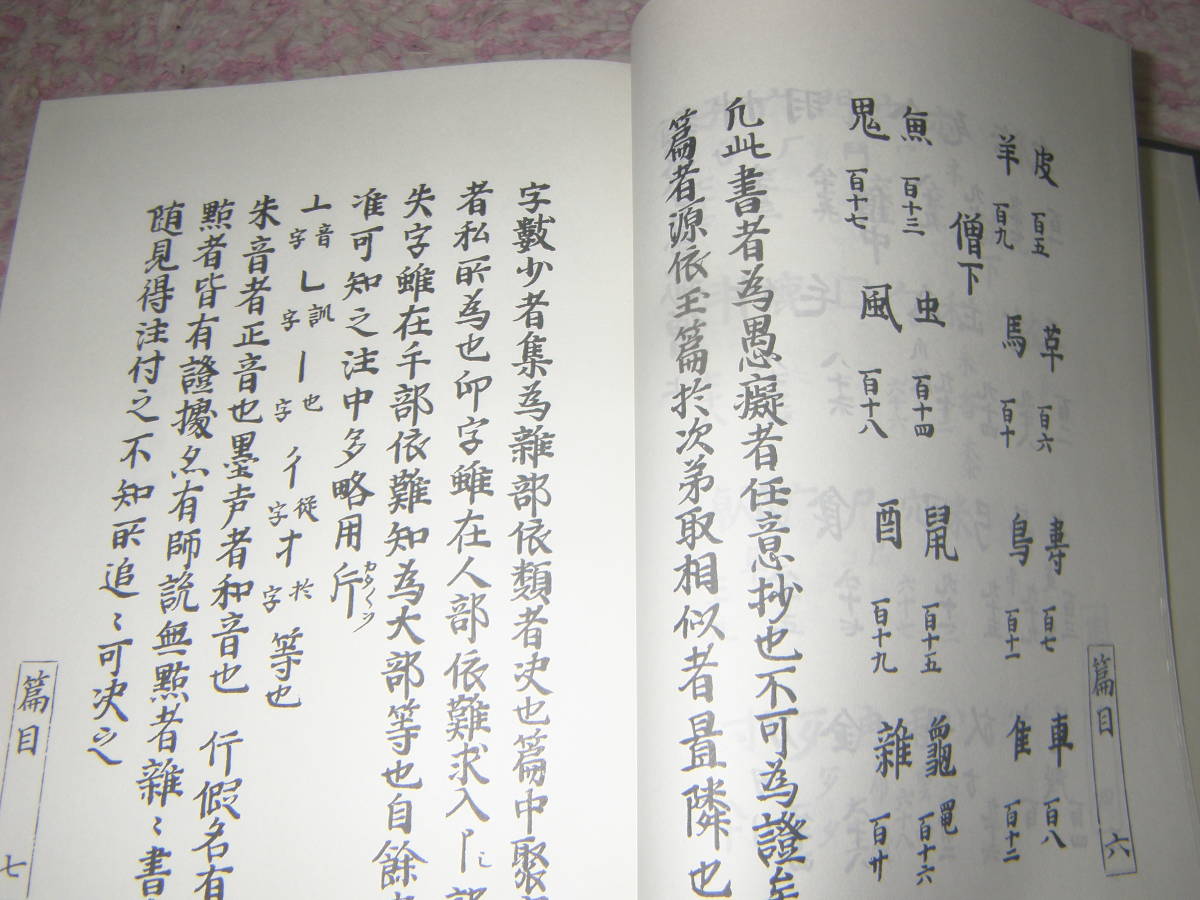 篇目 六
皮 百五 革 百六 韋 百七 車 百八
羊 百九 馬 百十 鳥 百十一 隹 百十二
僧下
魚 百十三 虫 百十四 鼠 百十五 龜 黽 百十六
鬼 百十七 風 百十八 酉 百十九 雜 百廿
凡此書者為愚癡者任意抄也不可為證矣
篇者源依玉篇於次第取相似者置隣也
字數少者集為雜部依類者决也篇中聚
者私所為也卬字雖在人部依難求入卩
失字雖在手部依難知為大部等也自餘
准可知之注中多略用
丄音字 乚訓字 丨也字 彳従字 才於字 等也
朱音者正音也墨声者和音也 假名有
點者皆有證據亦有師説無點者雜〻書
随見得注付之不知所追〻可决之
篇目 七